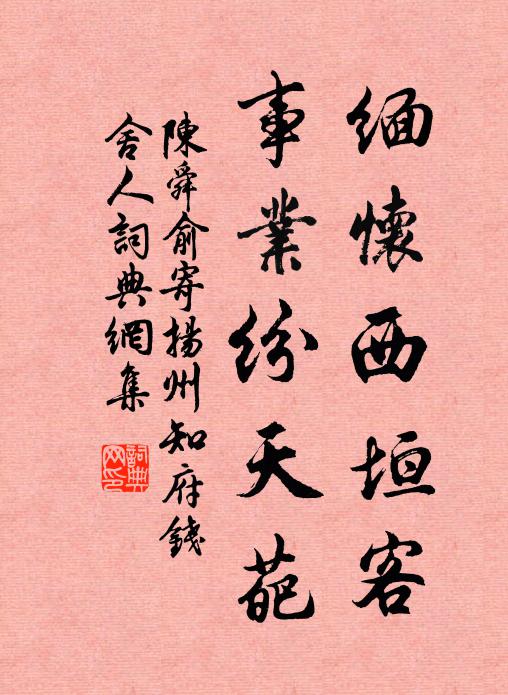 緬懷西垣客
事業紛天葩
陳舜俞寄揚州知府錢
舍人詞典網集
詞典
网印